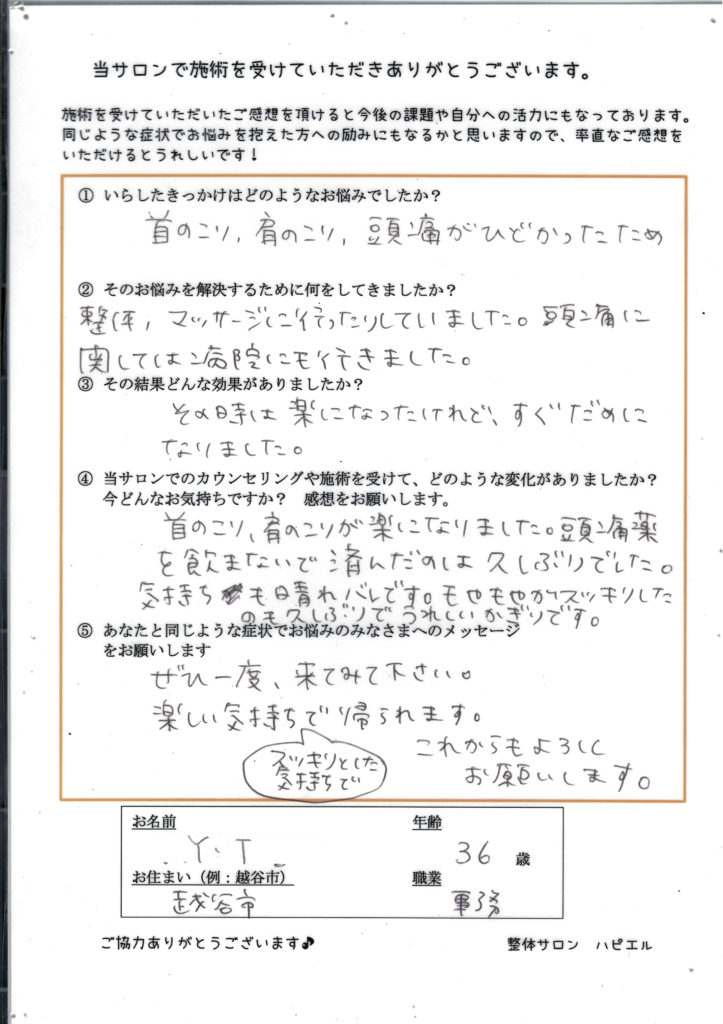 当サロンで施術を受けていただきありがとうございます。
施術を受けていただいたご感想を頂けると今後の課題や自分への活力にもなっております。
同じような症状でお悩みを抱えた方への励みにもなるかと思いますので、率直なご感想を
いただけるとうれしいです！
① いらしたきっかけはどのようなお悩みでしたか？
首のこり，肩のこり，頭痛がひどかったため
② そのお悩みを解決するために何をしてきましたか？
整体，マッサージに行ったりしていました。頭痛に
関しては病院にも行きました。
③ その結果どんな効果がありましたか？
その時は楽になったけれど、すぐだめに
なりました。
④ 当サロンでのカウンセリングや施術を受けて、どのような変化がありましたか？
今どんなお気持ちですか？ 感想をお願いします。
首のこり，肩のこりが楽になりました。頭痛薬
を飲まないで済んだのは久しぶりでした。
気持ちも日晴れバレです。もやもやがスッキリした
のも久しぶりでうれしいかぎりです。
⑤ あなたと同じような症状でお悩みのみなさまへのメッセージ
をお願いします
ぜひ一度、来てみて下さい。
楽しい気持ちで帰られます。
スッキリとした
気持ちで
これからもよろしく
お願いします。
お名前 年齢
Y・T 36 歳
お住まい（例：越谷市） 職業
越谷市 事務
ご協力ありがとうございます♪ 整体サロン ハピエル